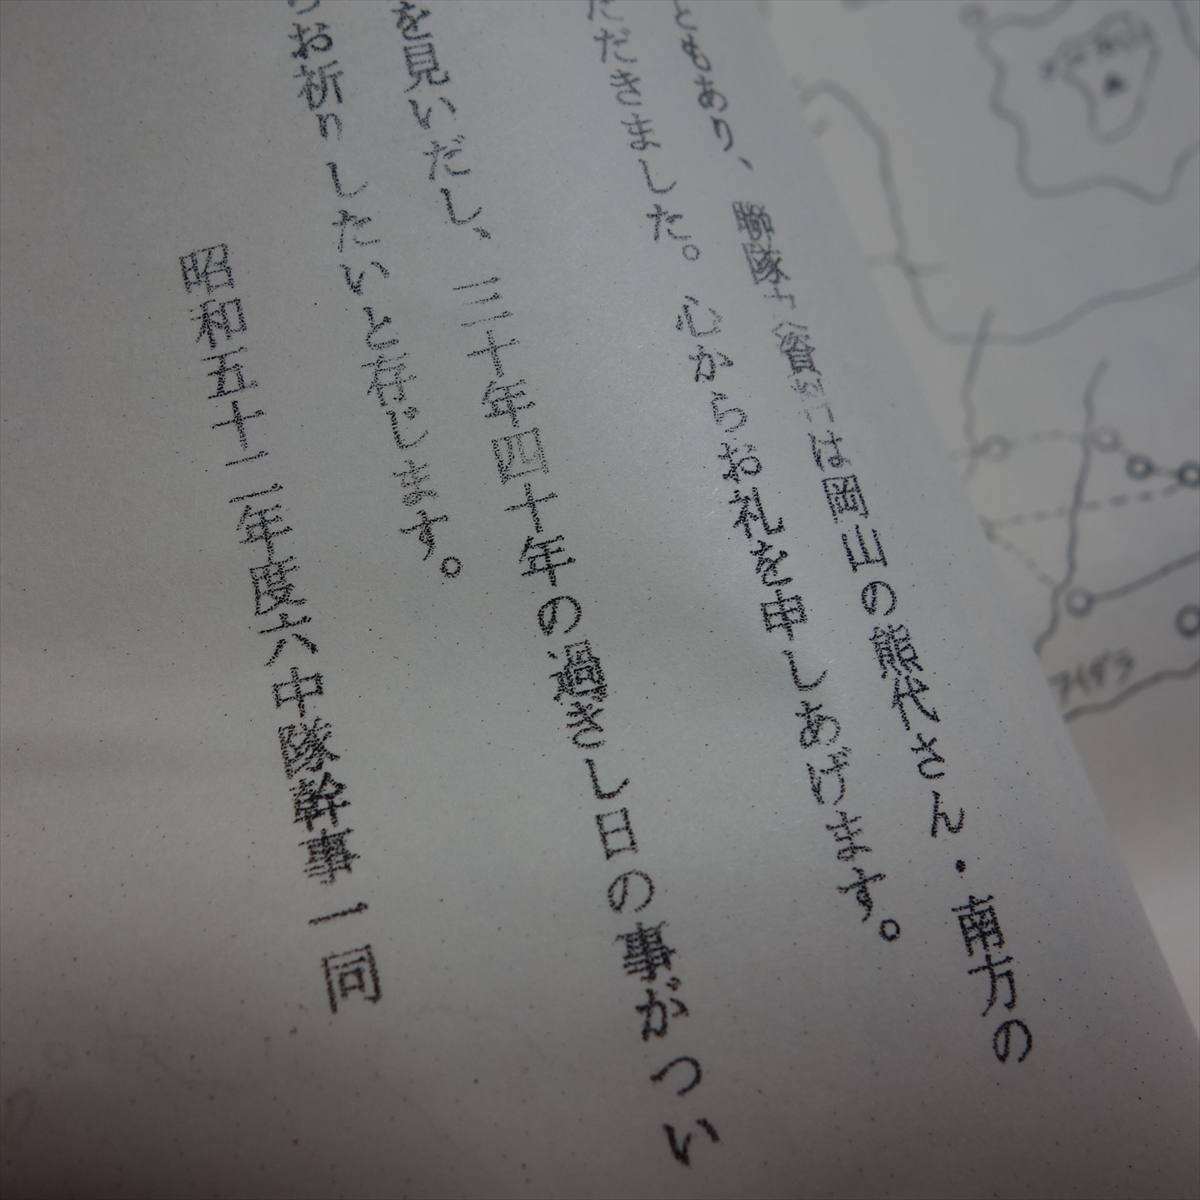 ともあり、聯隊は岡山の熊代さん・南方の
ただきました。心からお礼を申しあげます。
を見いだし、三十年四十年の過ぎし日の事がつい
お祈りしたいと存じます。
昭和五十二年度六中隊幹事一同